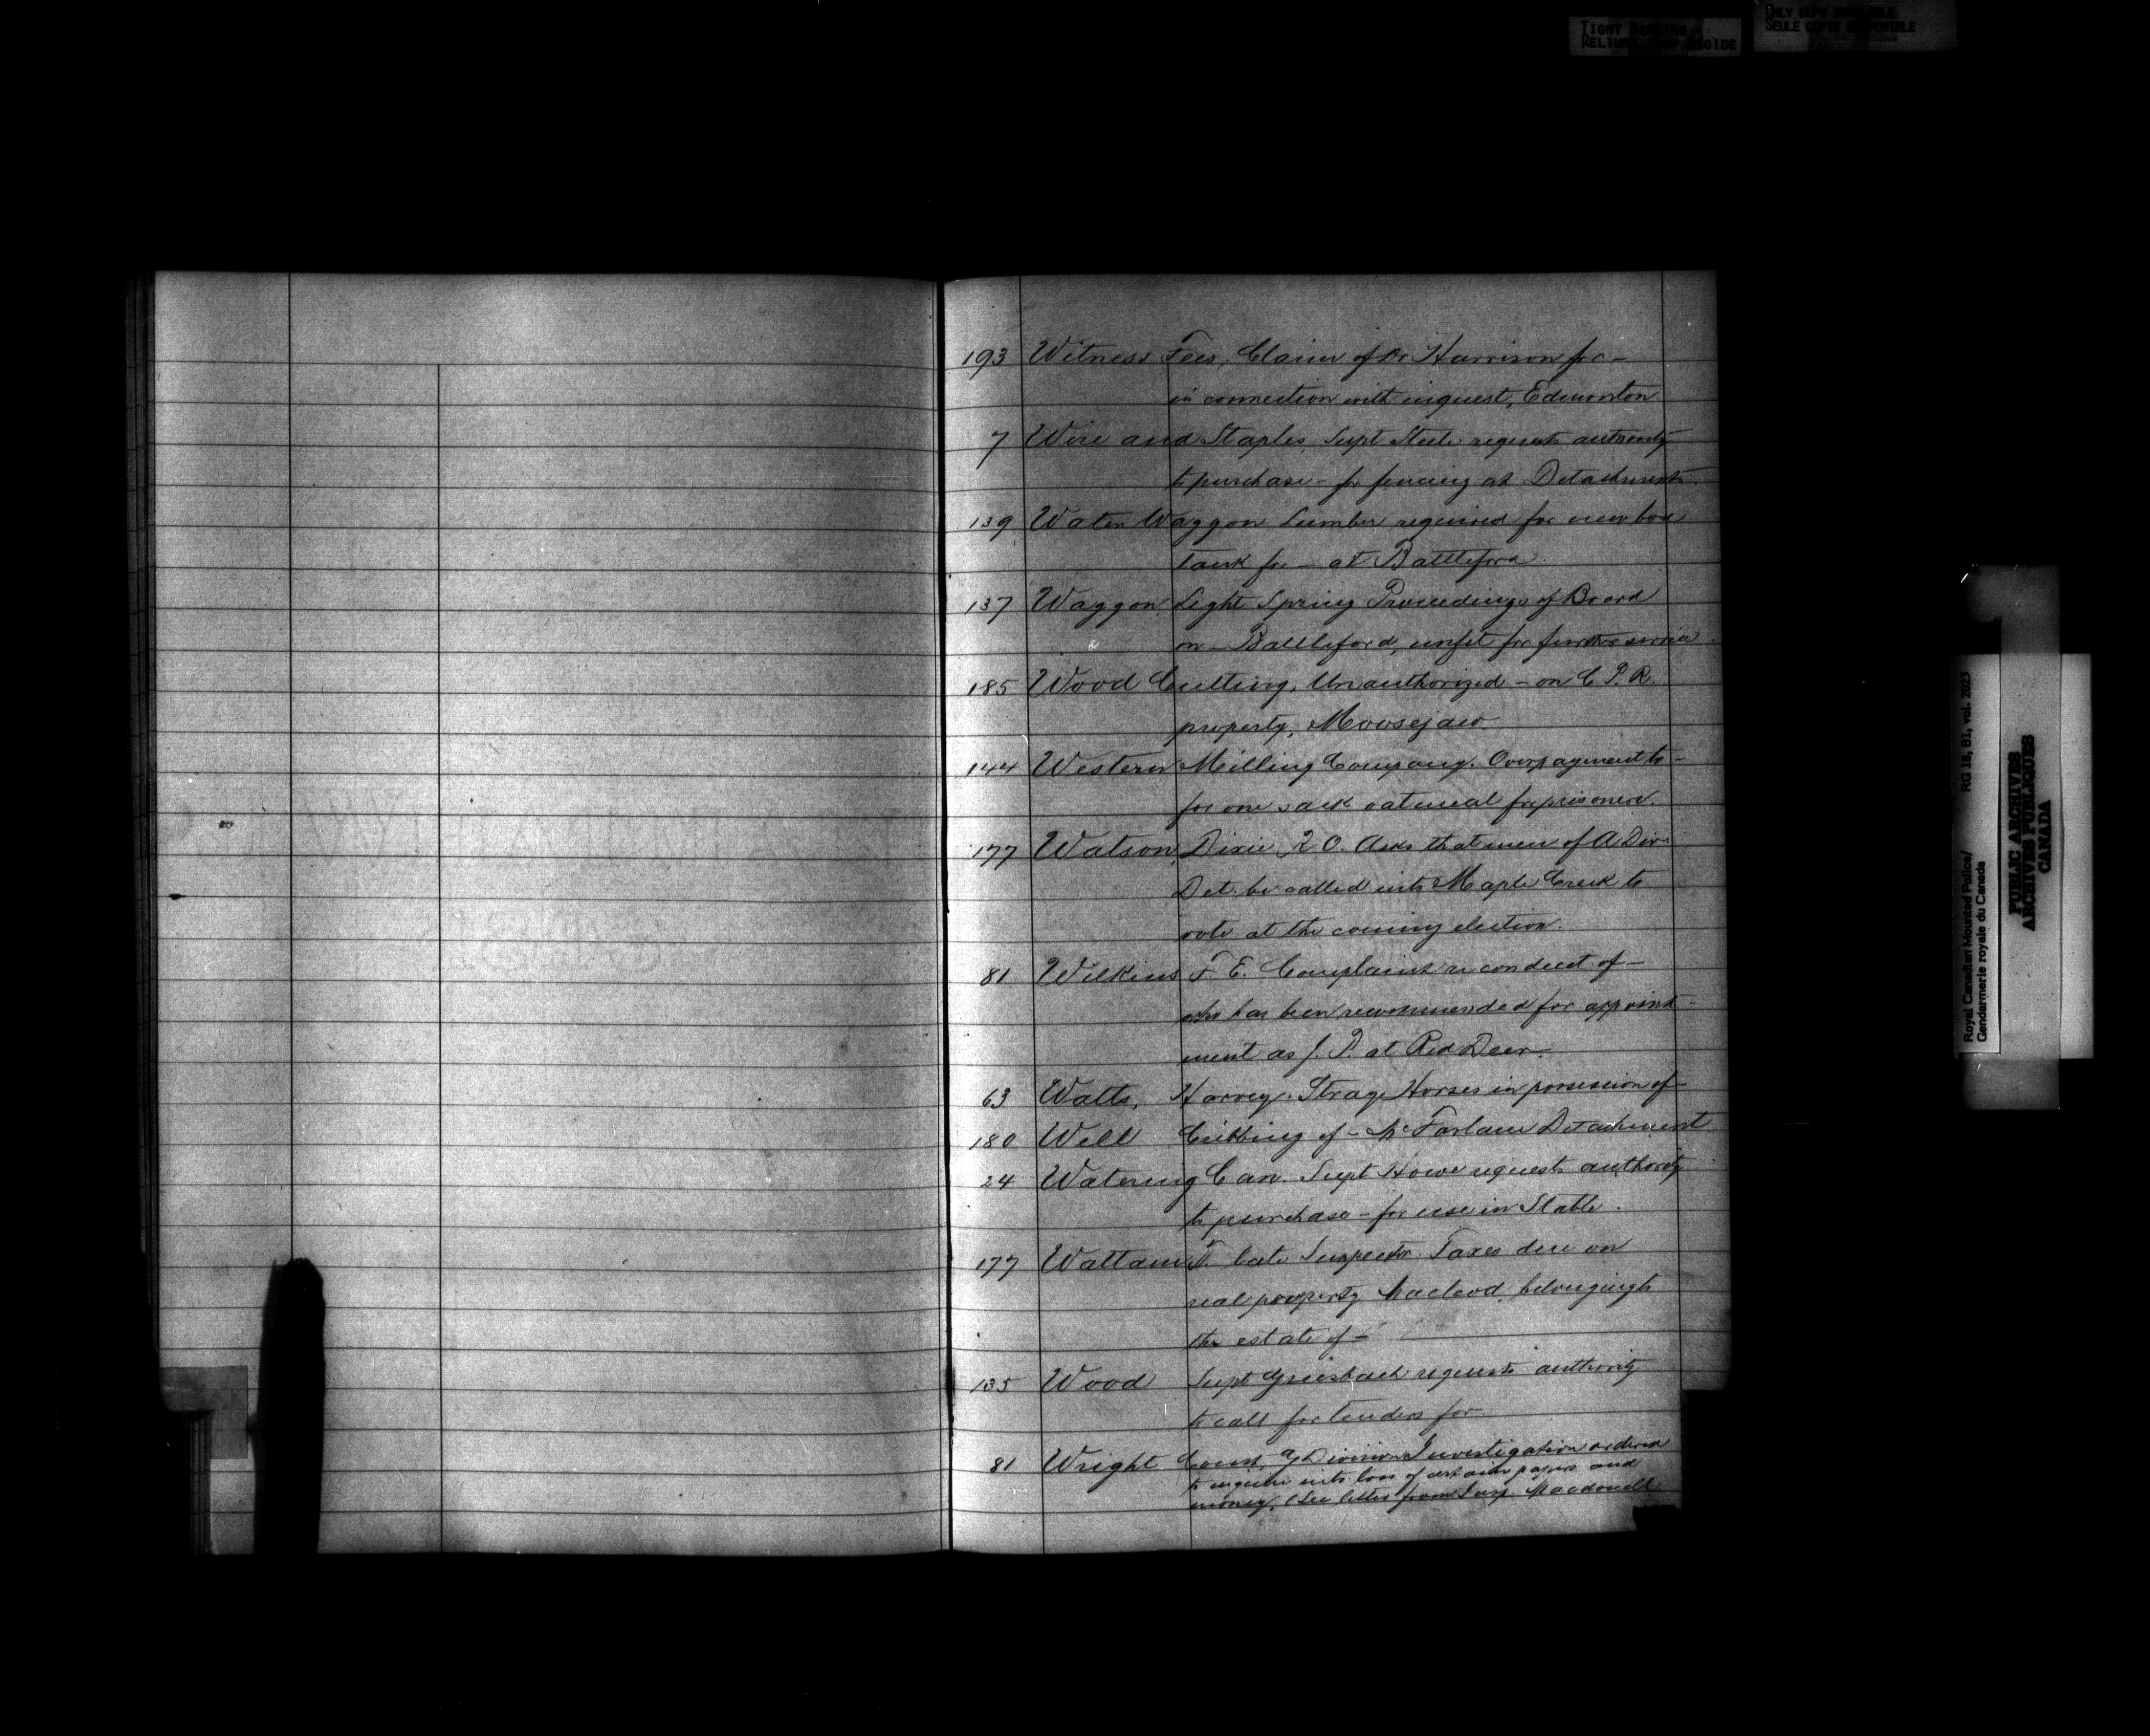 TIGHT BINDING
RELIURE TROP RIGIDE
ONLY COPY AVAILABLE
SEULE COPIE DISPONIBLE
193 Witness Fees, Claim of Dr Harrison for —
in connection with inquest, Edmonton
7 Wire and Staples, Supt Steele requests authority
to purchase — for fencing at Detachments.
139 Water Waggon Lumber required for new box
tank for — at Battleford.
137 Waggon, Light Spring Proceedings of Board
on — Battleford, unfit for further service.
185 Wood Cutting, Unauthorized — on C.P.R.
property, Moosejaw
144 Western Milling Company. Overpayment to —
for one sack oatmeal for prisoners.
177 Watson, Dixie. R O. Asks that men of A Div
Det. be called into Maple Creek to
vote at the coming election.
81 Wilkins F. E. Complaint re conduct of —
who has been recommended for appoint-
ment as J. P. at Red Deer.
63 Watts, Harvey. Stray Horses in possession of —
180 Well Cribbing of — McFarlane Detachment
24 Watering Can. Supt Howe requests authority
to purchase — for use in Stable.
177 Wattam T. late Inspector Taxes due on
real property Macleod, belonging to
the estate of —
135 Wood Supt Griesbach requests authority
to call for tenders for
81 Wright Const, G Division Investigation ordered
to inquire into loss of certain papers and
money, (See letter from Insp Macdonell.
Royal Canadian Mounted Police/ RG 18, B1, vol. 2023
Gendarmerie royale du Canada
PUBLIC ARCHIVES
ARCHIVES PUBLIQUES
CANADA